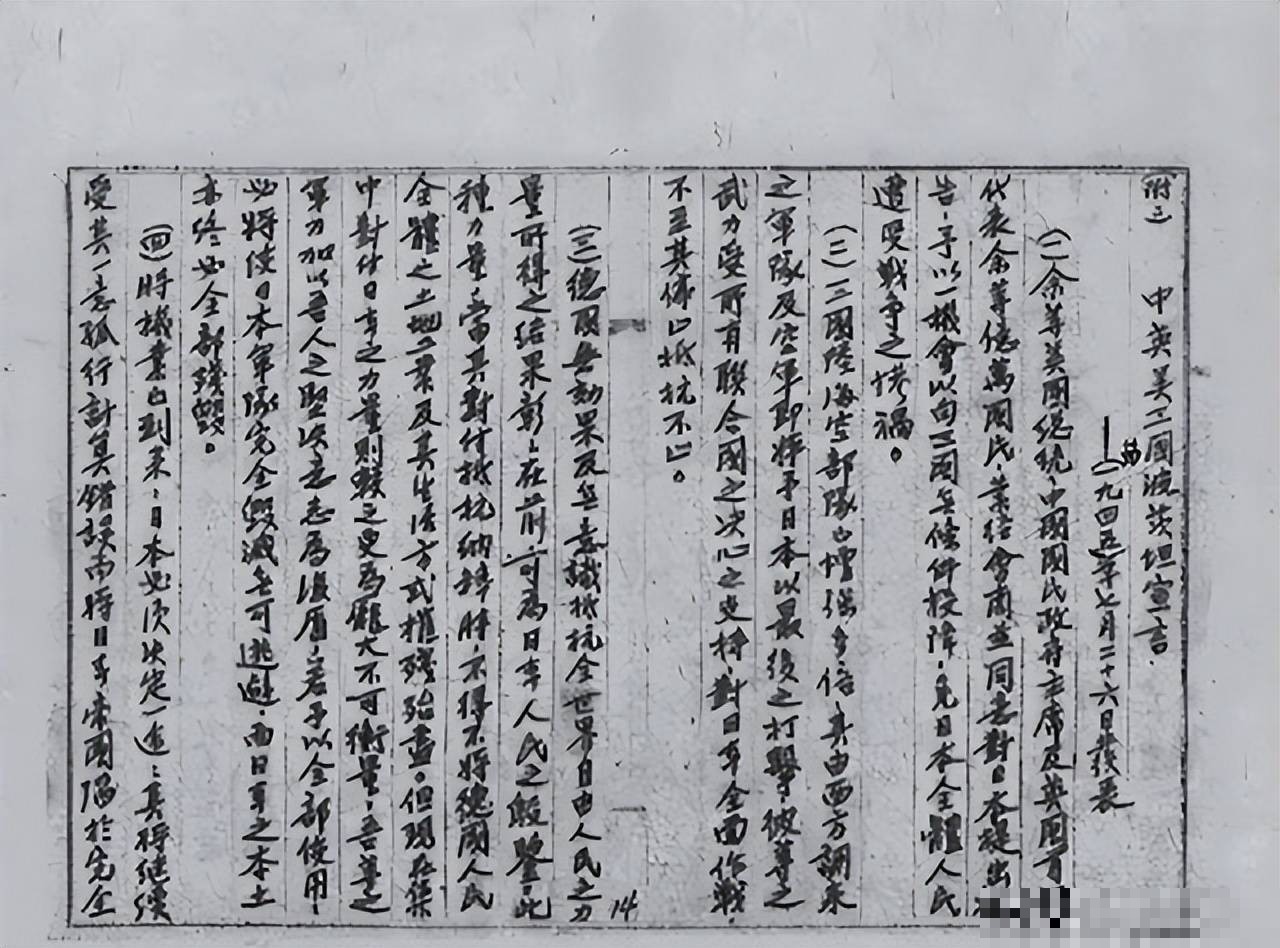 (附三) 中英美三國波茨坦宣言.
(一九四五年七月二十六日發表
(一)余等美國總統、中國國民政府主席及英國首
代表余等億萬國民、業經會商並同意對日本提出
告、予以一機會以向三國無條件投降、免日本全體人民
遭受戰争之惨禍。
(二)三國陸海空部隊已增強多倍、其由西方調來
之軍隊及空軍即將予日本以最後之打擊、彼等之
武力受所有聯合國之决心之支持、對日本全面作戰、
不至其停止抵抗不止。
14
(三)德國無効果及無意識抵抗全世界自由人民之力
量所得之結果彰彰在前、可為日本人民之殷鑒、此
種力量、當其對付抵抗納粹時、不得不將德國人民
全體之土地工業及其生活方式摧殘殆盡。但現在集
中對付日本之力量則較之更為龐大不可衡量、吾等之
軍力加以吾人之堅决意志為後盾、若予以全部使用、
必將使日本軍隊完全毀滅無可逃避、而日本之本土
亦終必全部殘毀。
(四)時機業已到來、日本必須决定一途、其將繼續
受其一意孤行計算錯誤而將日本帝國陷於完全